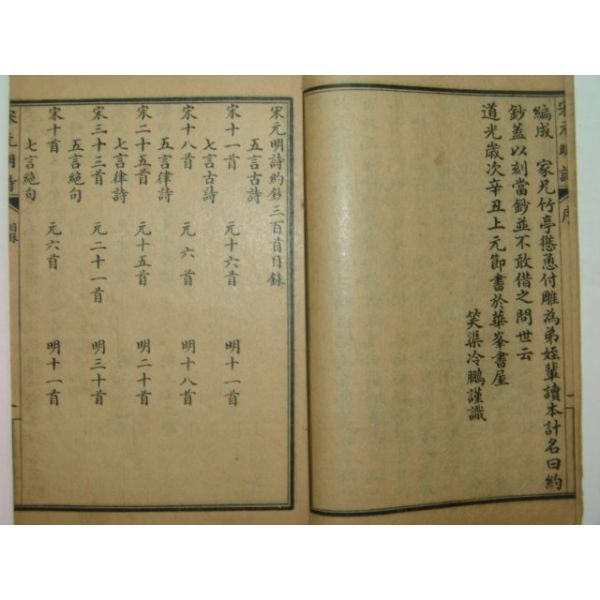 宋元明詩
序
編成　家兄竹亭慫恿付雕為弟姪輩讀本計名曰約
鈔蓋以刻當鈔並不敢借之問世云
道光歲次辛丑上元節書於華峯書屋
笑渠冷鵬謹識
宋元明詩約鈔三百首目錄
五言古詩
宋十一首　元十六首　明十一首
七言古詩
宋十八首　元六首　明十八首
五言律詩
宋二十五首　元十五首　明二十首
七言律詩
宋三十三首　元二十一首　明三十首
五言絕句
宋十首　元六首　明十一首
七言絕句
宋元明詩
目錄
一